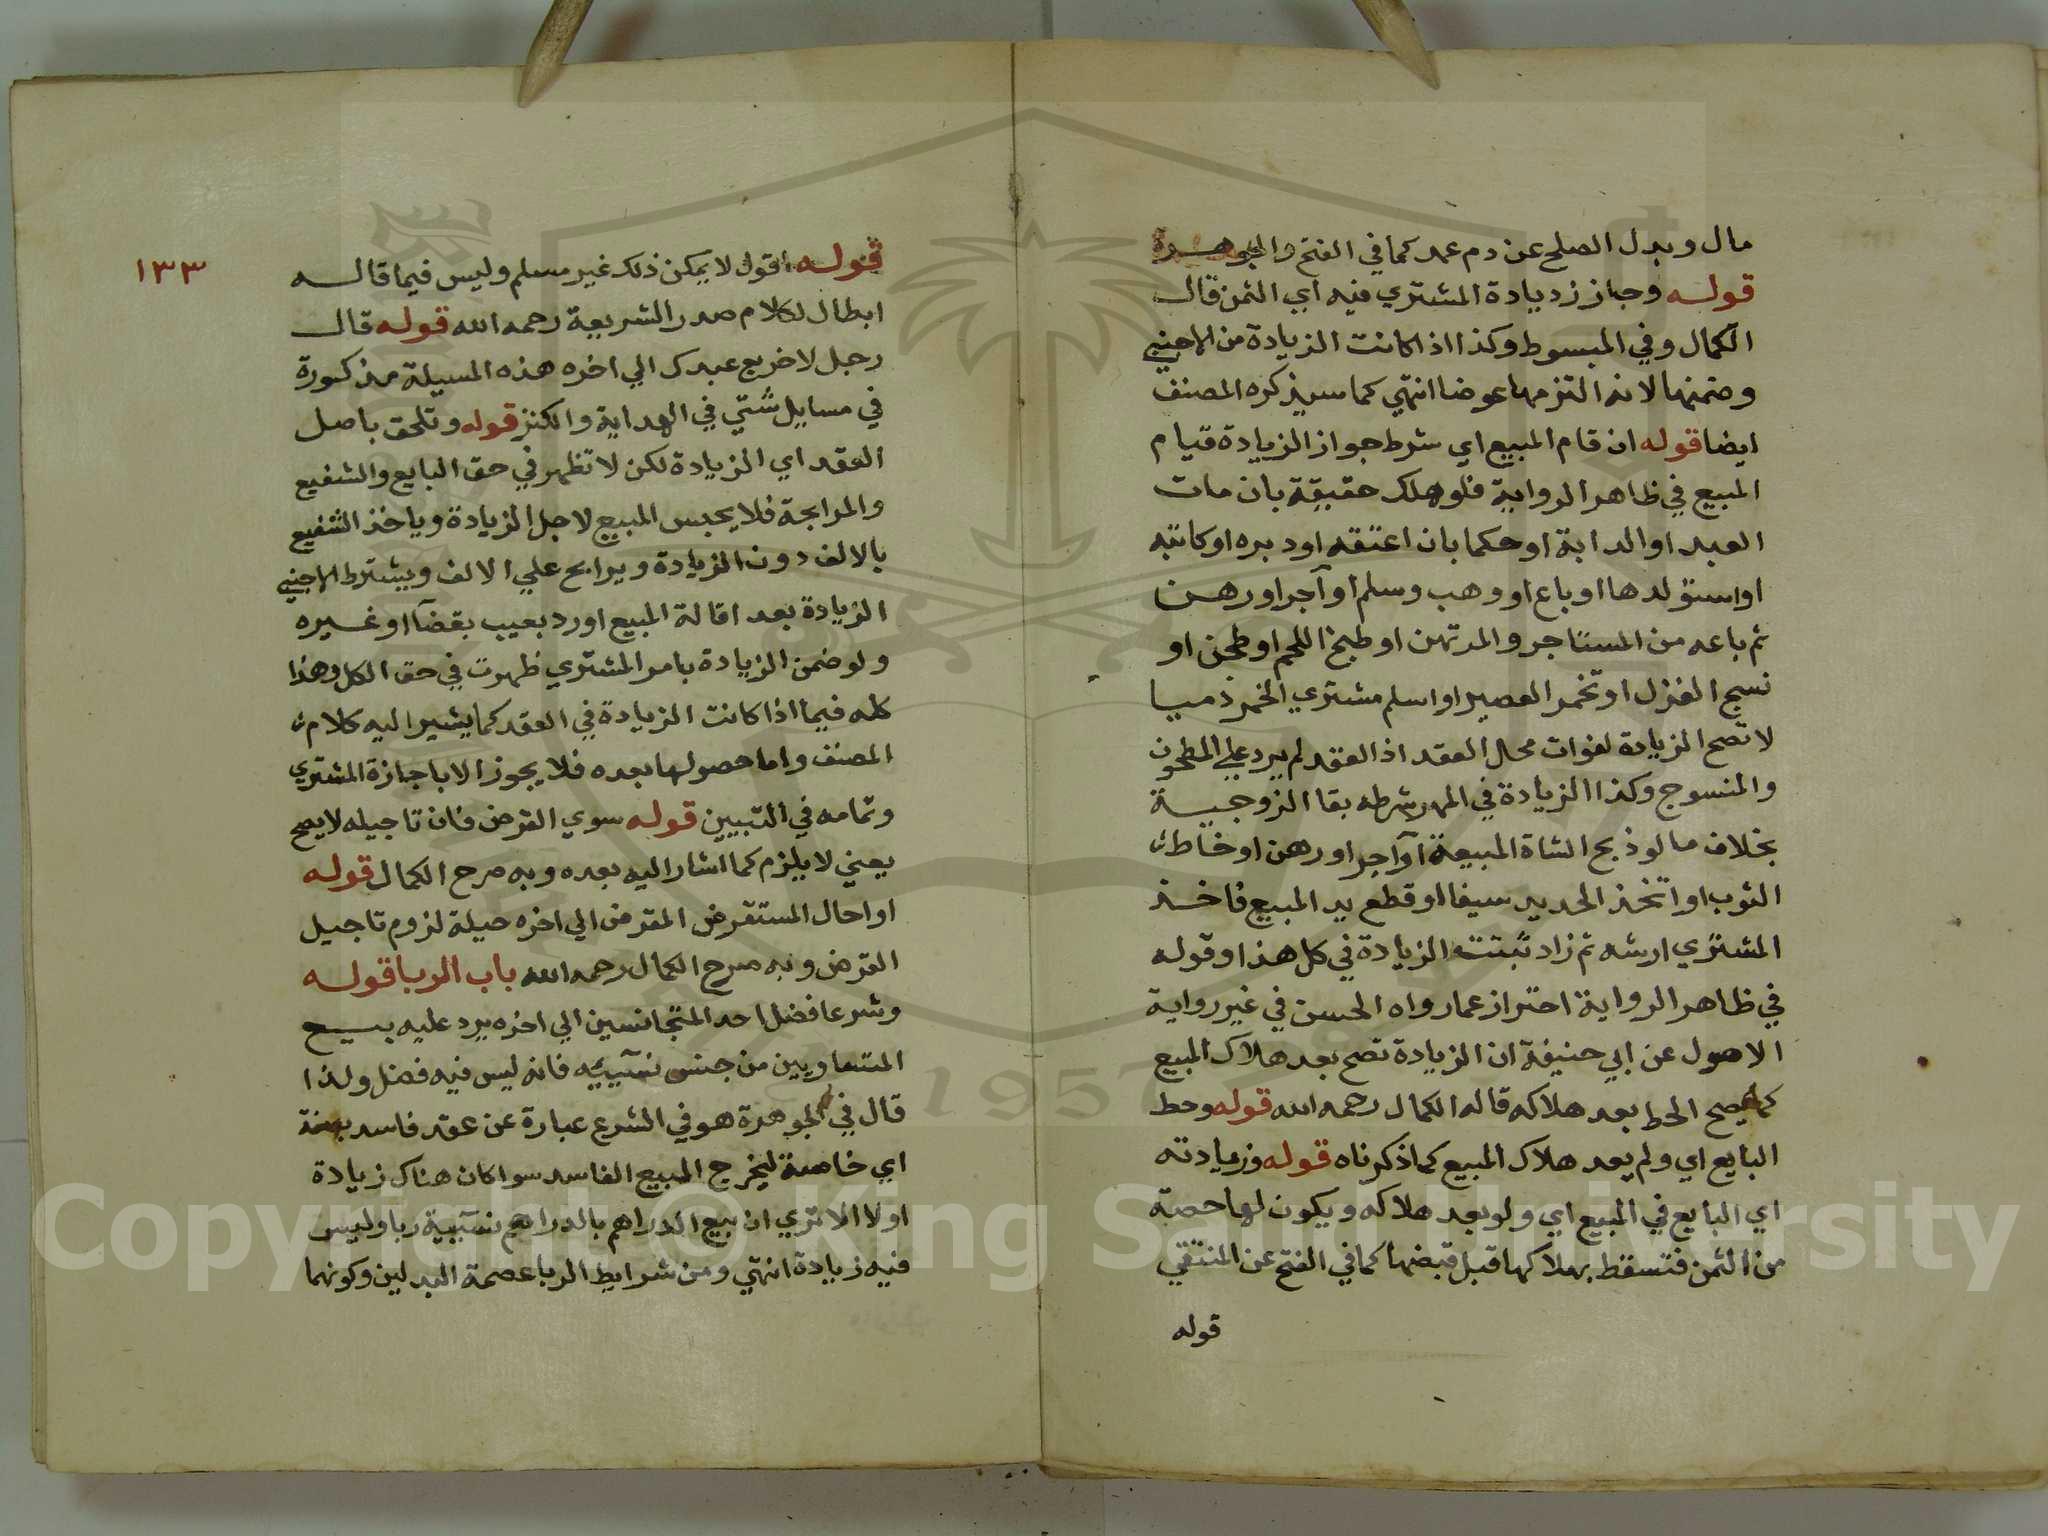 مال وبدل الصلح عن دم عمد كما في الفتح والجوهرة
قوله وجاز زيادة المشتري فيه اي الثمن قال
الكمال وفي المبسوط وكذا اذا كانت الزيادة من الاجنبي
وضمنها لانه التزمها عوضا انتهي كما سيذكره المصنف
ايضا قوله ان قام المبيع اي شرط جواز الزيادة قيام
المبيع في ظاهر الرواية فلو هلك حقيقة بان مات
العبد او الدابة او حكما بان اعتقه او دبره او كاتبه
او استولدها او باع او وهب وسلم او آجر او رهن
ثم باعه من المستاجر والمرتهن او طبخ اللحم او طحن او
نسج الغزل او تخمر العصير او اسلم مشتري الخمر ذميا
لا تصح الزيادة لفوات محل العقد اذ العقد لم يرد علي المطحون
والمنسوج وكذا الزيادة في المهر شرطه بقا الزوجية
بخلاف ما لو ذبح الشاة المبيعة او آجر او رهن او خاط
الثوب او اتخذ الحديد سيفا او قطع يد المبيع فاخذ
المشتري ارشه ثم زاد ثبتت الزيادة في كل هذا وقوله
في ظاهر الرواية احتراز عما رواه الحسن في غير رواية
الاصول عن ابي حنيفة ان الزيادة تصح بعد هلاك المبيع
كما يصح الحط بعد هلاكه قاله الكمال رحمه الله قوله وحط
البايع اي ولم يعد هلاك المبيع كما ذكرناه قوله وزيادته
اي البايع في المبيع اي ولو بعد هلاكه ويكون لها حصة
من الثمن فتسقط بهلاكها قبل قبضها كما في الفتح عن المنتقي
قوله
١٣٣
قوله اقول لا يمكن ذلك غير مسلم وليس فيما قاله
ابطال لكلام صدر الشريعة رحمه الله قوله قال
رجل لاخر بع عبدك الي اخره هذه المسيلة مذكورة
في مسايل شتي في الهداية والكنز قوله وتلحق باصل
العقد اي الزيادة لكن لا تظهر في حق البايع والشفيع
والمرابحة فلا يحبس المبيع لاجل الزيادة وياخذ الشفيع
بالالف دون الزيادة ويرابح علي الالف ويشترط الاجنبي
الزيادة بعد اقالة المبيع او رد بعيب بقضآ او غيره
ولو ضمن الزيادة بامر المشتري ظهرت في حق الكل وهذا
كله فيما اذا كانت الزيادة في العقد كما يشير اليه كلام
المصنف واما حصولها بعده فلا يجوز الا باجازة المشتري
وتمامه في التبيين قوله سوي القرض فان تاجيله لا يصح
يعني لا يلزم كما اشار اليه بعده وبه صرح الكمال قوله
او احال المستقرض المقرض الي اخره حيلة لزوم تاجيل
القرض وبه صرح الكمال رحمه الله باب الربا قوله
وشرعا فضل احد المتجانسين الي اخره يرد عليه بيع
المتساويين من جنس نسيئه فانه ليس فيه فضل ولذا
قال في الجوهرة هو في الشرع عبارة عن عقد فاسد بصفة
اي خاصة ليخرج المبيع الفاسد سوا كان هناك زيادة
اولا الا تري ان بيع الدراهم بالدراهم نسيئية ربا وليس
فيه زيادة انتهي ومن شرايط الربا عصمة البدلين وكونهما
Copyright © King Saud University
1957